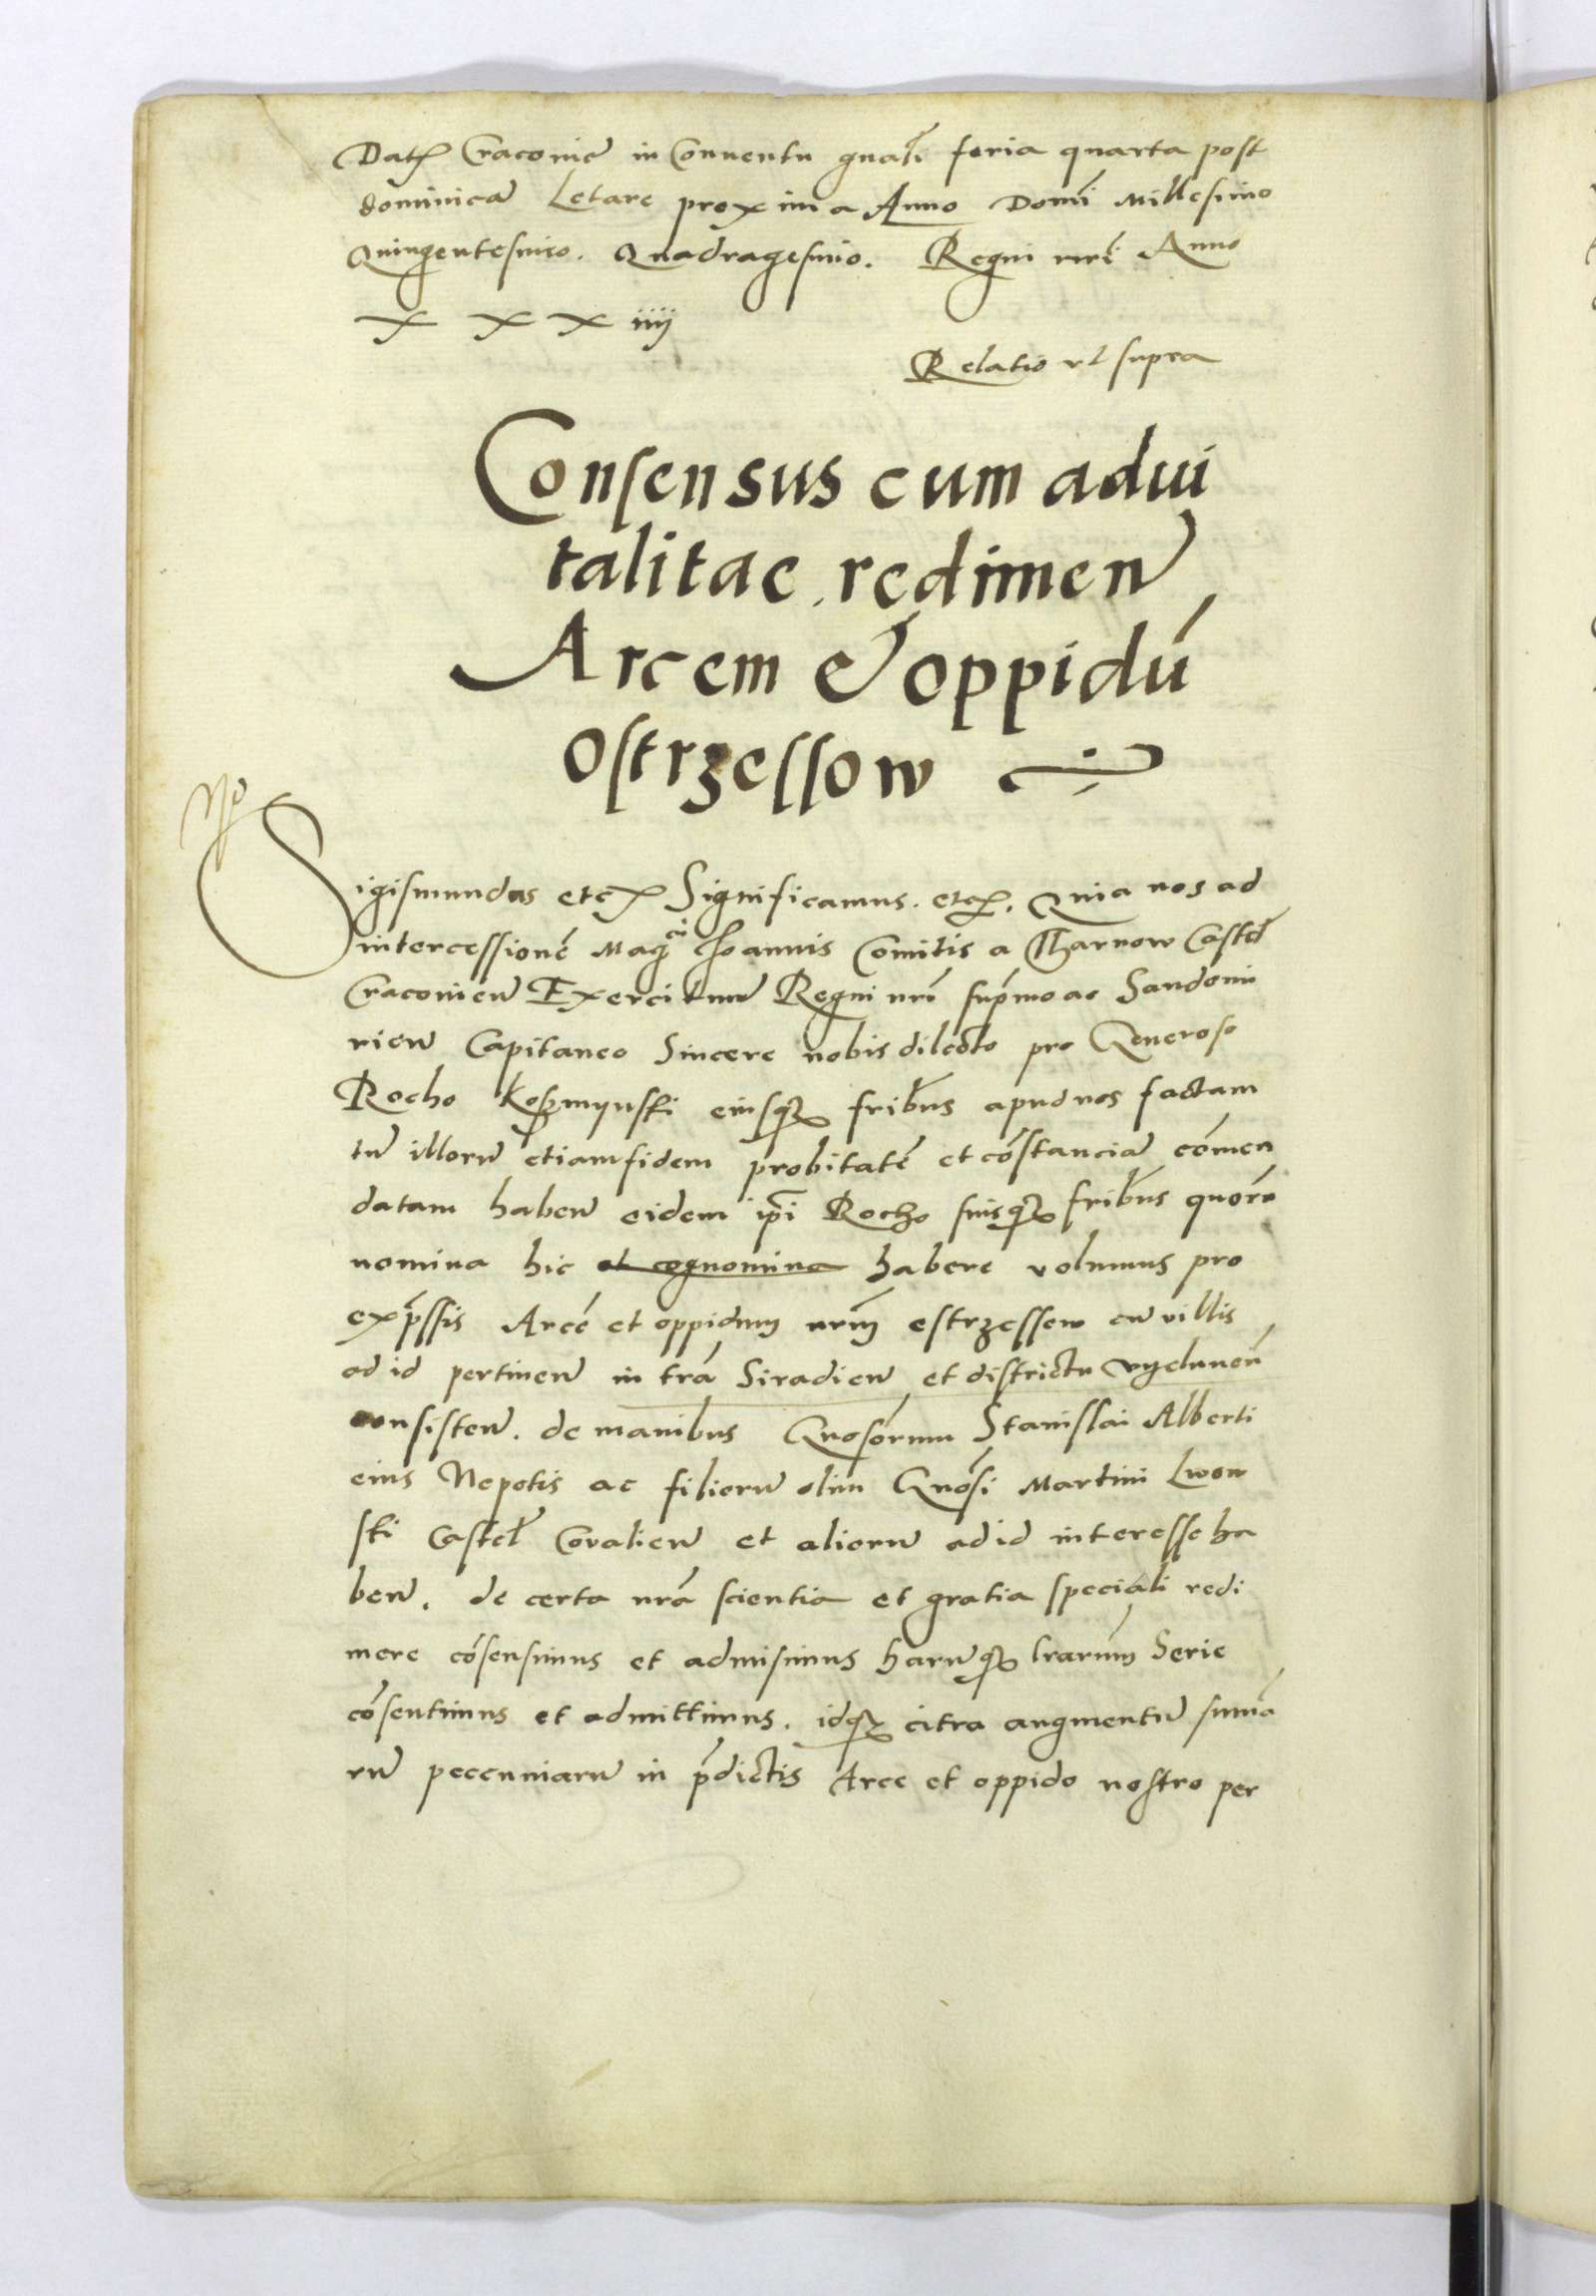 Datȝ Cracoviē in Conventu gnali feria quarta post
dominicā Letare proxima Anno Domi Millesimo
Quingentesimo. Quadragesimo. Regni nri Anno
X X X iiij
Relatio ut supra
Consensus cum advi
talitae redimen
Arcem & oppidū
Ostrzessow
Sigismundus etcȝ Significamus. etcȝ. Quia nos ad
intercessionē Magci Joannis Comitis a Tharnow Castel
Cracovien Exercituū Regni nri supmo ac Sandomi
rien Capitaneo Sincere nobis dilecto pro Generoso
Rocho Kozmynski eiusqȝ fribus apud nos factam
tū illorū etiam fidem probitatē et cōstanciā cōmen
datam haben eidem ipi Rocho suisqȝ fribus quorū
nomina hic et cognomina habere volumus pro
expssis Arcē et oppidum nrm ostrzessow cū villis
ad id pertinen in tra Siradien et districtu vyelunen
consisten. de manibus Gnosorum Stanislai Alberti
eius Nepotis ac filiorū olim Gnosi Martini Lwow
ski Castel Covalien et aliorū ad id interesse ha
ben. de certa nra scientia et gratia speciali redi
mere cōsensimus et admisimus harūqȝ lrarum Serie
cōsentimus et admittimus. idqȝ citra augmentū sumā
rū peccuniarū in pdictis Arce et oppido nostro per